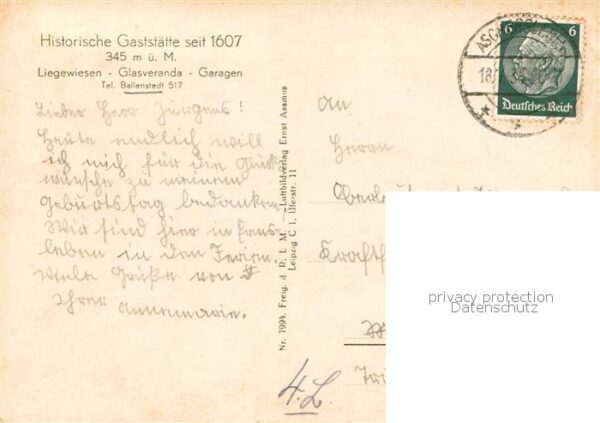 Historische Gaststätte seit 1607
345 m ü. M.
Liegewiesen - Glasveranda - Garagen
Tel. Ballenstedt 517
Lieber Herr Jürgens!
Heute endlich will
ich mich für die Glück
wünsche zu meinem
Geburtstag bedanken.
Wir sind hier in
leben in den Ferien.
Viele Grüße von
Ihrer Annemarie.
Nr. 7994. Freig. d. R. L. M. — Luftbildverlag Ernst Assmus
Leipzig C 1, Uferstr. 11
An
Herrn
4.L.
6 6
Deutsches Reich
18.
privacy protection
Datenschutz